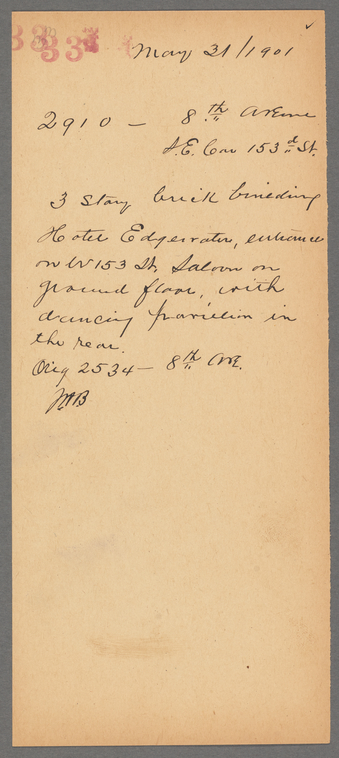 33 33
May 31/1901
2910 — 8th Avenue
S.E. Cor 153d St.
3 Story brick building
Hotel Edgewater, entrance
on W 153 St. Saloon on
ground floor, with
dancing pavilion in
the rear.
Orig 2534 — 8th Ave.